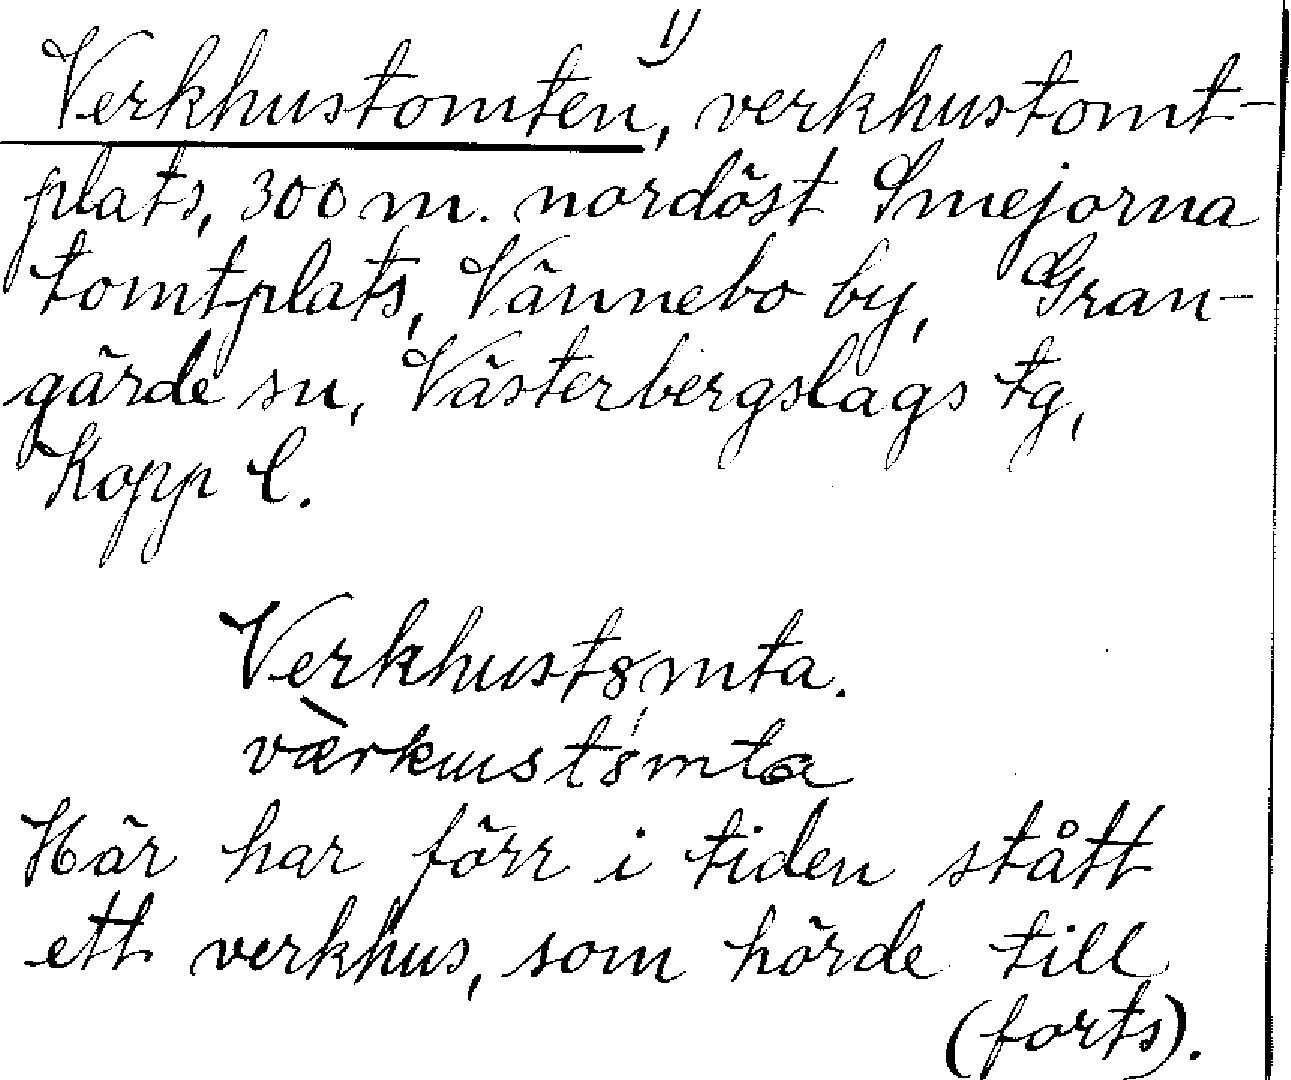 Verkhustomten,¹⁾ verkhustomt-
plats, 300 m. nordöst Smejorna
tomtplats, Vännebo by, Gran-
gärde sn, Västerbergslags tg,
Kopp l.
Verkhust8mta.
vær̀kust8mta
Här har förr i tiden stått
ett verkhus, som hörde till
(forts).